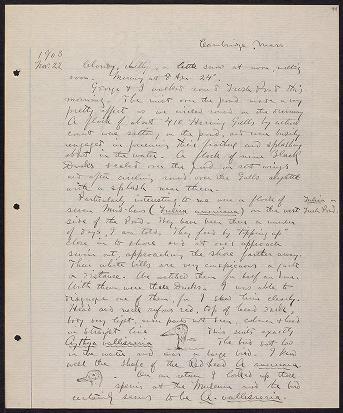 Cambridge, Mass
1903
Nov. 22
Cloudy, chilly, a little snow at noon, melting
soon. Mercury at 8 A.M. 24°.
George & I walked round Fresh Pond this
morning. The mist over the pond made a very
pretty effect as we
A flock of about 410 Herring Gulls by actual
count was sitting on the pond, and were busily
engaged in preening their feathers and splashing
about in the water. A flock of nine Black
Ducks scaled over the pond on set wings
and after circling round over the Gulls alighted
with a splash near them.
Particularly interesting to me was a flock of
seven Mud-hens (Fulica americana) on the west
Fulica in
Fresh Pond.
side of the Pond. They have been there a number
of days, I am told. They feed by "tipping up"
close in to shore and at our approach
swim out, approaching the shore farther away.
Their white bills are very conspicuous a
a distance. We watched them for half an hour.
With them were three Ducks. I was able to
diagnose one of them, for I saw him clearly.
Head and neck rufous red, top of head dark,
body very light,
in straight line This suits exactly
Aythya vallisneria The bird sat low
in the water and was a large bird. I know
well the shape of the Redhead A. americana.
On our return I looked up the
species at the Museum and the bird
certainly seems to be A. vallisneria.